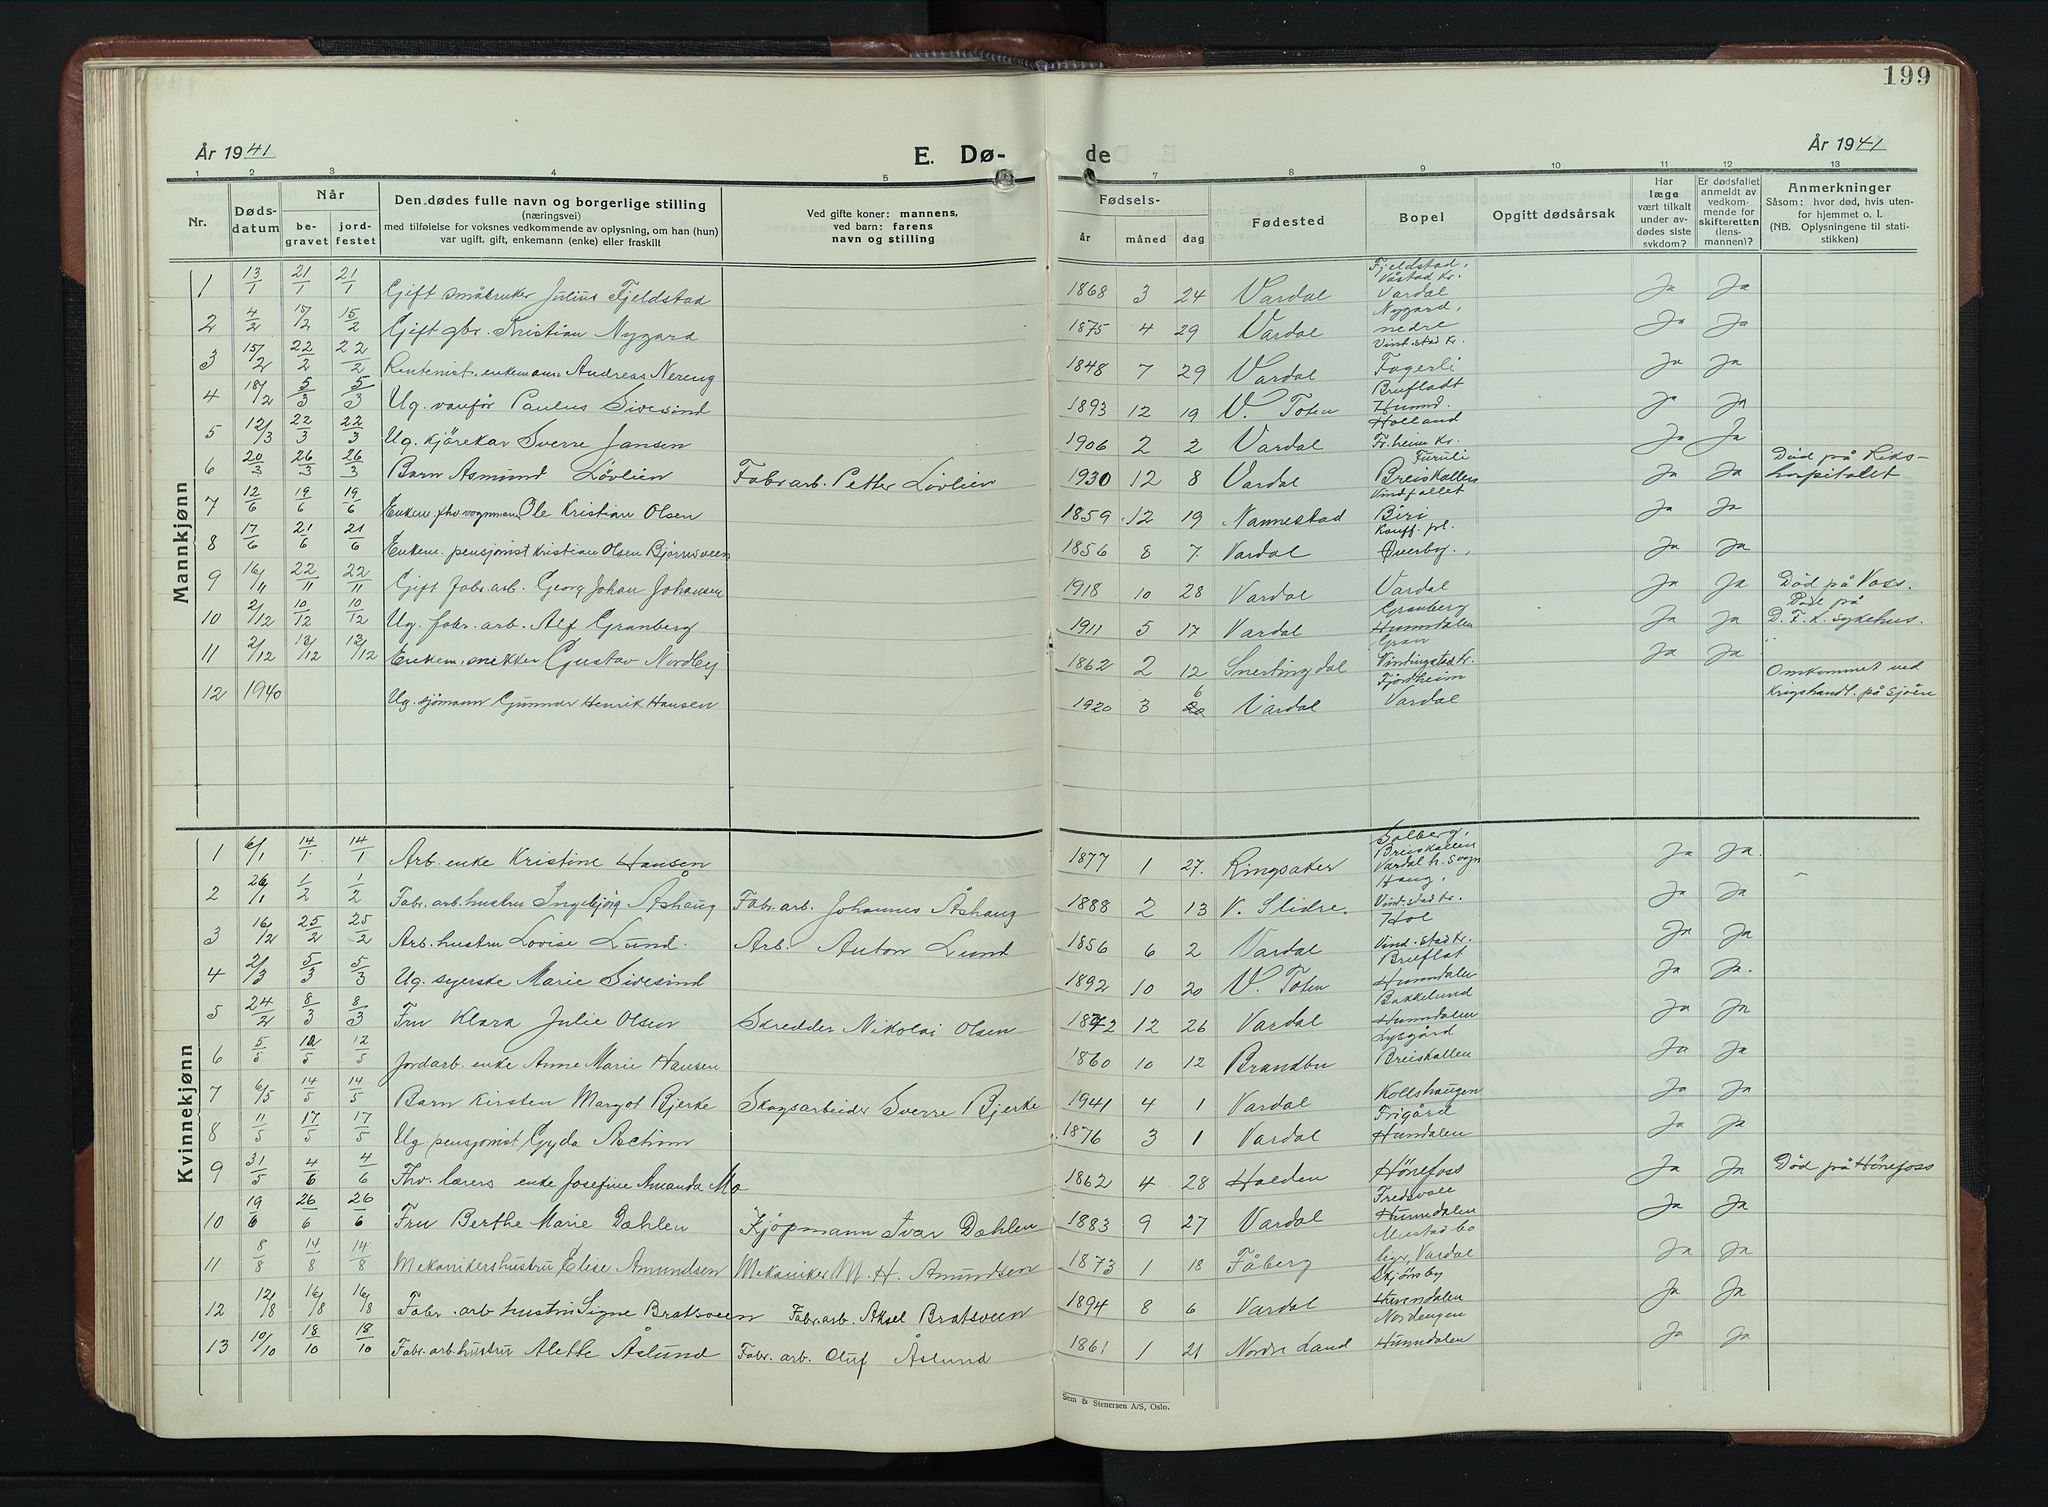 199
År 1941 E. Dø- de År 1941
1 2 3 4 5 7 8 9 10 11 12 13
Nr. Døds-datum Når be-gravet jord-festet
Den dødes fulle navn og borgerlige stilling
(næringsvei)
med tilføielse for voksnes vedkommende av oplysning, om han (hun)
var ugift, gift, enkemann (enke) eller fraskilt
Ved gifte koner: mannens,
ved barn: farens
navn og stilling
Fødsels- år måned dag
Fødested
Bopel
Opgitt dødsårsak
Har læge vært tilkalt under av-dødes siste sykdom?
Er dødsfallet anmeldt av vedkom-mende for skifteretten (lens-mannen)?
Anmerkninger
Såsom: hvor død, hvis uten-for hjemmet o. l.
(NB. Oplysningene til stati-stikken)
Mannkjønn
1 13/1 21/1 21/1 Gift småbruker Julius Fjeldstad 1868 3 24 Vardal Fjeldstad, Våstad kr. Vardal Ja Ja
2 4/2 15/2 15/2 Gift gbr. Kristian Nygard 1875 4 29 Vardal Nygard, nedre Vind.stad kr. Ja Ja
3 15/2 22/2 22/2 Rentenist, enkemann Andreas Nereng 1848 7 29 Vardal Fagerli Ja Ja
4 18/2 5/3 5/3 Ug. vanfør Paulus Sivesind 1893 12 19 V. Toten Brufladt Hunnd. Ja Ja
5 12/3 22/3 22/3 Ug. kjørekar Sverre Jansen 1906 2 2 Vardal Holland Fr.heim kr. Ja Ja
6 20/3 26/3 26/3 Barn Asmund Løvlien Fabr.arb. Petter Løvlien 1930 12 8 Vardal Furuli Breiskallen Ja Ja Död på Riks-hospitalet
7 12/6 19/6 19/6 Enkem. fhv. vognmann Ole Kristian Olsen 1859 12 19 Nannestad Vindfallet Biri Ja Ja
8 17/6 21/6 21/6 Enkem. pensjonist Kristian Olsen Bjørnsveen 1856 8 7 Vardal Kauff. pl. Øverby. Ja Ja
9 16/11 22/11 22/11 Gift fabr.arb. Georg Johan Johansen 1918 10 28 Vardal Vardal Ja Ja Död på
10 2/12 10/12 10/12 Ug. fabr. arb. Alf Granberg 1911 5 17 Vardal Granberg Hunndalen Ja Ja Död på sykehus.
11 2/12 13/12 13/12 Enkem. snekker Gustav Nordby 1862 2 12 Snertingdal Gran Vindingstad kr. Ja Ja
12 1940 Ug. sjømann Gunnar Henrik Hansen 1920 3 6 Vardal Fjordheim Vardal Omkommet ved Krigshandl. på sjøen
Kvinnekjønn
1 6/1 14/1 14/1 Arb. enke Kristine Hansen 1877 1 27. Ringsaker Solberg, Breiskallen Vardal h. sogn Ja Ja.
2 26/1 1/2 1/2 Fabr. arb. hustru Ingebjørg Åshaug Fabr. arb. Johannes Åshaug 1888 2 13 V. Slidre. Haug, Vind.stad kr. Ja Ja
3 16/2 25/2 25/2 Arb. hustru Lovise Lund. Arb. Anton Lund 1856 6 2 Vardal Hol Vind.stad kr. Ja Ja
4 2/3 5/3 5/3 Ug. syerske Marie Sivesind 1892 10 20 V. Toten Bruflat Hunndalen Ja Ja.
5 24/2 8/3 8/3 Fru Klara Julie Olsen Skredder Nikolai Olsen 1872 12 26 Vardal Bakkelund Hunndalen Ja Ja
6 5/5 12/5 12/5 Jordarb. enke Anne Marie Hansen 1860 10 12 Brandbu Lysgård Breiskallen Ja Ja
7 6/5 14/5 14/5 Barn Kirsten Margot Bjerke Skogsarbeider Sverre Bjerke 1941 4 1 Vardal Kollshaugen Ja Ja
8 11/5 17/5 17/5 Ug. pensjonist Gyda Aschim 1876 3 1 Vardal Frigård Hundalen Ja Ja
9 31/5 4/6 4/6 Fhv. lærers enke Josefine Amanda Mo 1862 4 28 Halden Hönefoss Ja Ja Död på Hönefoss
10 19/6 26/6 26/6 Fru Berthe Marie Dæhlen Kjøpmann Ivar Dæhlen 1883 9 27 Vardal Fredsvoll Hunndalen Ja Ja
11 8/8 14/8 14/8 Mekanikershustru Elise Amundsen Mekaniker M. H. Amundsen 1873 1 18 Fåberg Mustad bo liger, Vardal Ja Ja
12 12/8 16/8 16/8 Fabr. arb hustru Signe Bratsveen Fabr.arb. Aksel Bratsveen 1894 8 6 Vardal Skjønsby Hunndalen Ja Ja
13 10/10 18/10 18/10 Fabr. arb. hustru Alette Åslund Fabr. arb. Oluf Åslund 1861 1 21 Nordre Land Nordengen Hunndalen Ja Ja
Sem & Stenersen A/S, Oslo.